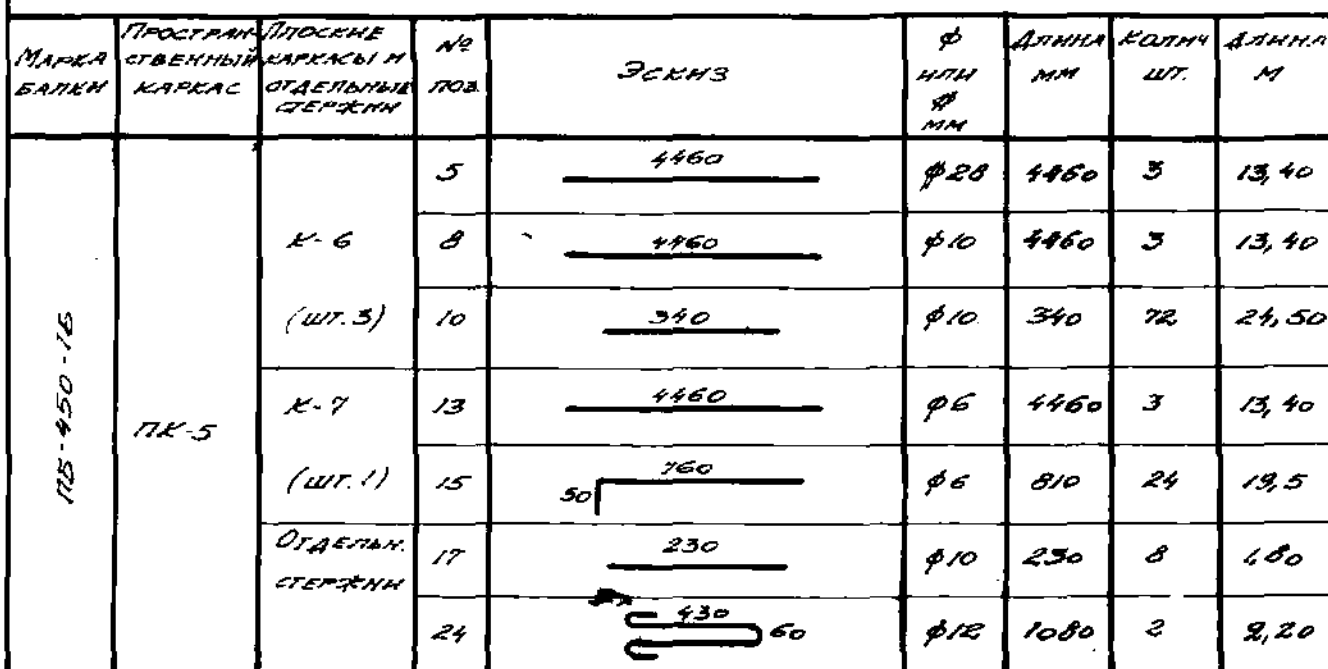 Марка балки
Пространственный каркас
Плоские каркасы и отдельные стержни
№ поз.
Эскиз
ф или ф мм
Длина мм
Колич шт.
Длина м
ПБ-450-1Б
ПК-5
К-6
(шт. 3)
5 4460 ф28 4460 3 13,40
8 4460 ф10 4460 3 13,40
10 340 ф10 340 72 24,50
К-7
(шт. 1)
13 4460 ф6 4460 3 13,40
15 50 760 ф6 810 24 19,5
Отдельн. стержни
17 230 ф10 230 8 1,80
24 430 60 ф12 1080 2 2,20